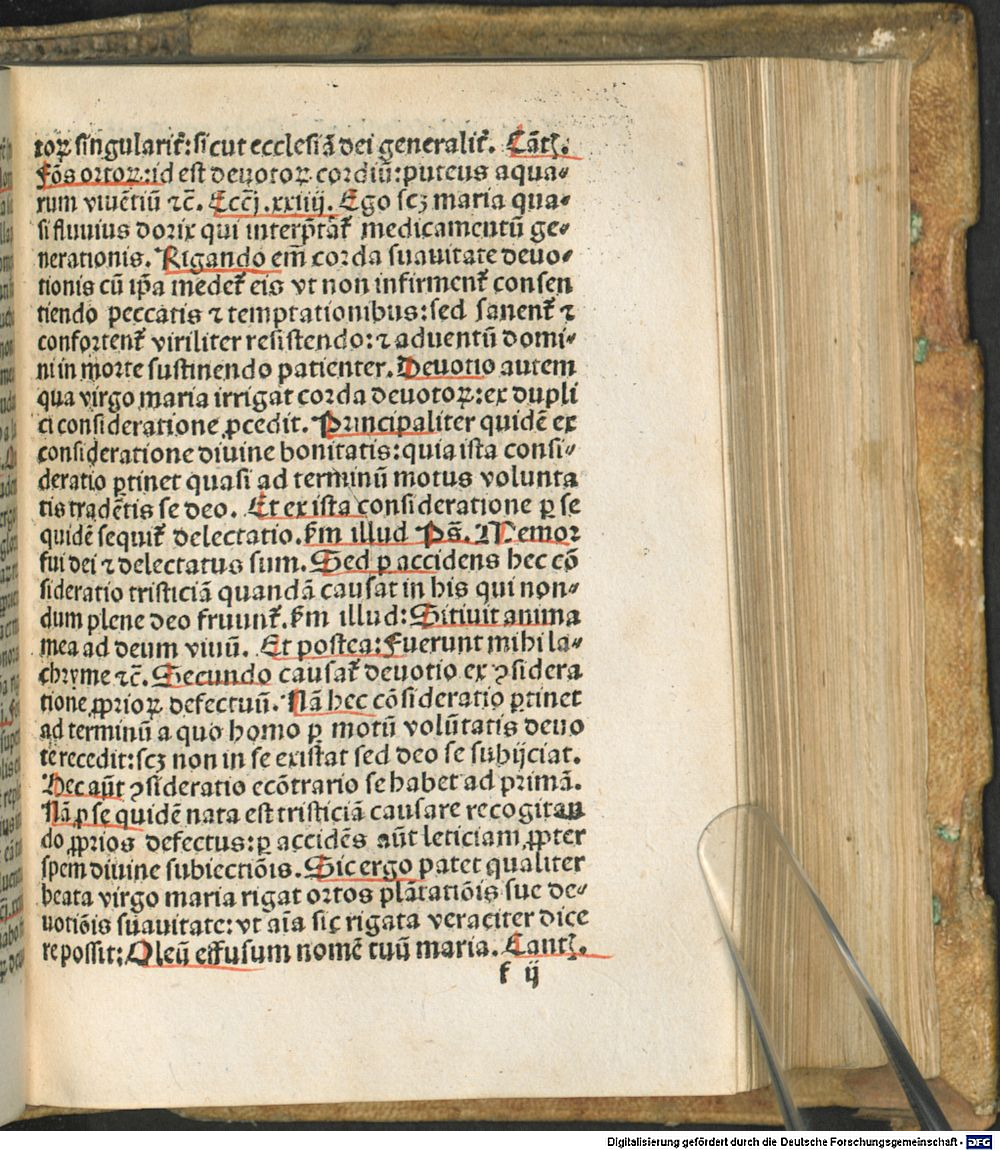 toꝝ singularit̃: sicut ecclesiã dei generalit̃. Cãtꝭ.
Fõs ortoꝝ: id est deuotoꝝ cordiũ: puteus aqua⸗
rum viuẽtiũ ⁊c̃. Ecc̃j. xxiiij. Ego scꝫ maria qua⸗
si fluuius dorix qui interp̃tat̃ medicamentũ ge⸗
nerationis. Rigando em̃ corda suauitate deuo⸗
tionis cũ ip̃a medet̃ eis vt non infirment̃ consen
tiendo peccatis ⁊ temptationibus: sed sanent̃ ⁊
confortent̃ viriliter resistendo: ⁊ aduentũ domi⸗
ni in morte sustinendo patienter. Deuotio autem
qua virgo maria irrigat corda deuotoꝝ: ex dupli
ci consideratione ꝓcedit. Principaliter quidẽ ex
consideratione diuine bonitatis: quia ista consi⸗
deratio ꝑtinet quasi ad terminũ motus volunta
tis tradẽtis se deo. Et ex ista consideratione ꝑ se
quidẽ sequit̃ delectatio. km̃ illud Ps̃. Memor
fui dei ⁊ delectatus sum. Sed ꝑ accidens hec cõ
sideratio tristiciã quandã causat in his qui non⸗
dum plene deo fruunt̃. km̃ illud: Sitiuit anima
mea ad deum viuũ. Et postea: Fuerunt mihi la⸗
chryme ⁊c̃. Secundo causat̃ deuotio ex ꝯsidera
tione ꝓprioꝝ defectuũ. Nã hec cõsideratio ꝑtinet
ad terminũ a quo homo ꝑ motũ volũtatis deuo
te recedit: scꝫ non in se existat sed deo se subijciat.
Hec aũt ꝯsideratio ecõtrario se habet ad primã.
Nã ꝑ se quidẽ nata est tristiciã causare recogitan
do ꝓprios defectus: ꝑ accidẽs aũt leticiam ꝓpter
spem diuine subiectiõis. Sic ergo patet qualiter
beata virgo maria rigat ortos plãtatiõis sue de⸗
uotiõis suauitate: vt aĩa sic rigata veraciter dice
re possit: Oleũ effusum nomẽ tuũ maria. Cantꝭ.
f ij
Digitalisierung gefördert durch die Deutsche Forschungsgemeinschaft - DFG